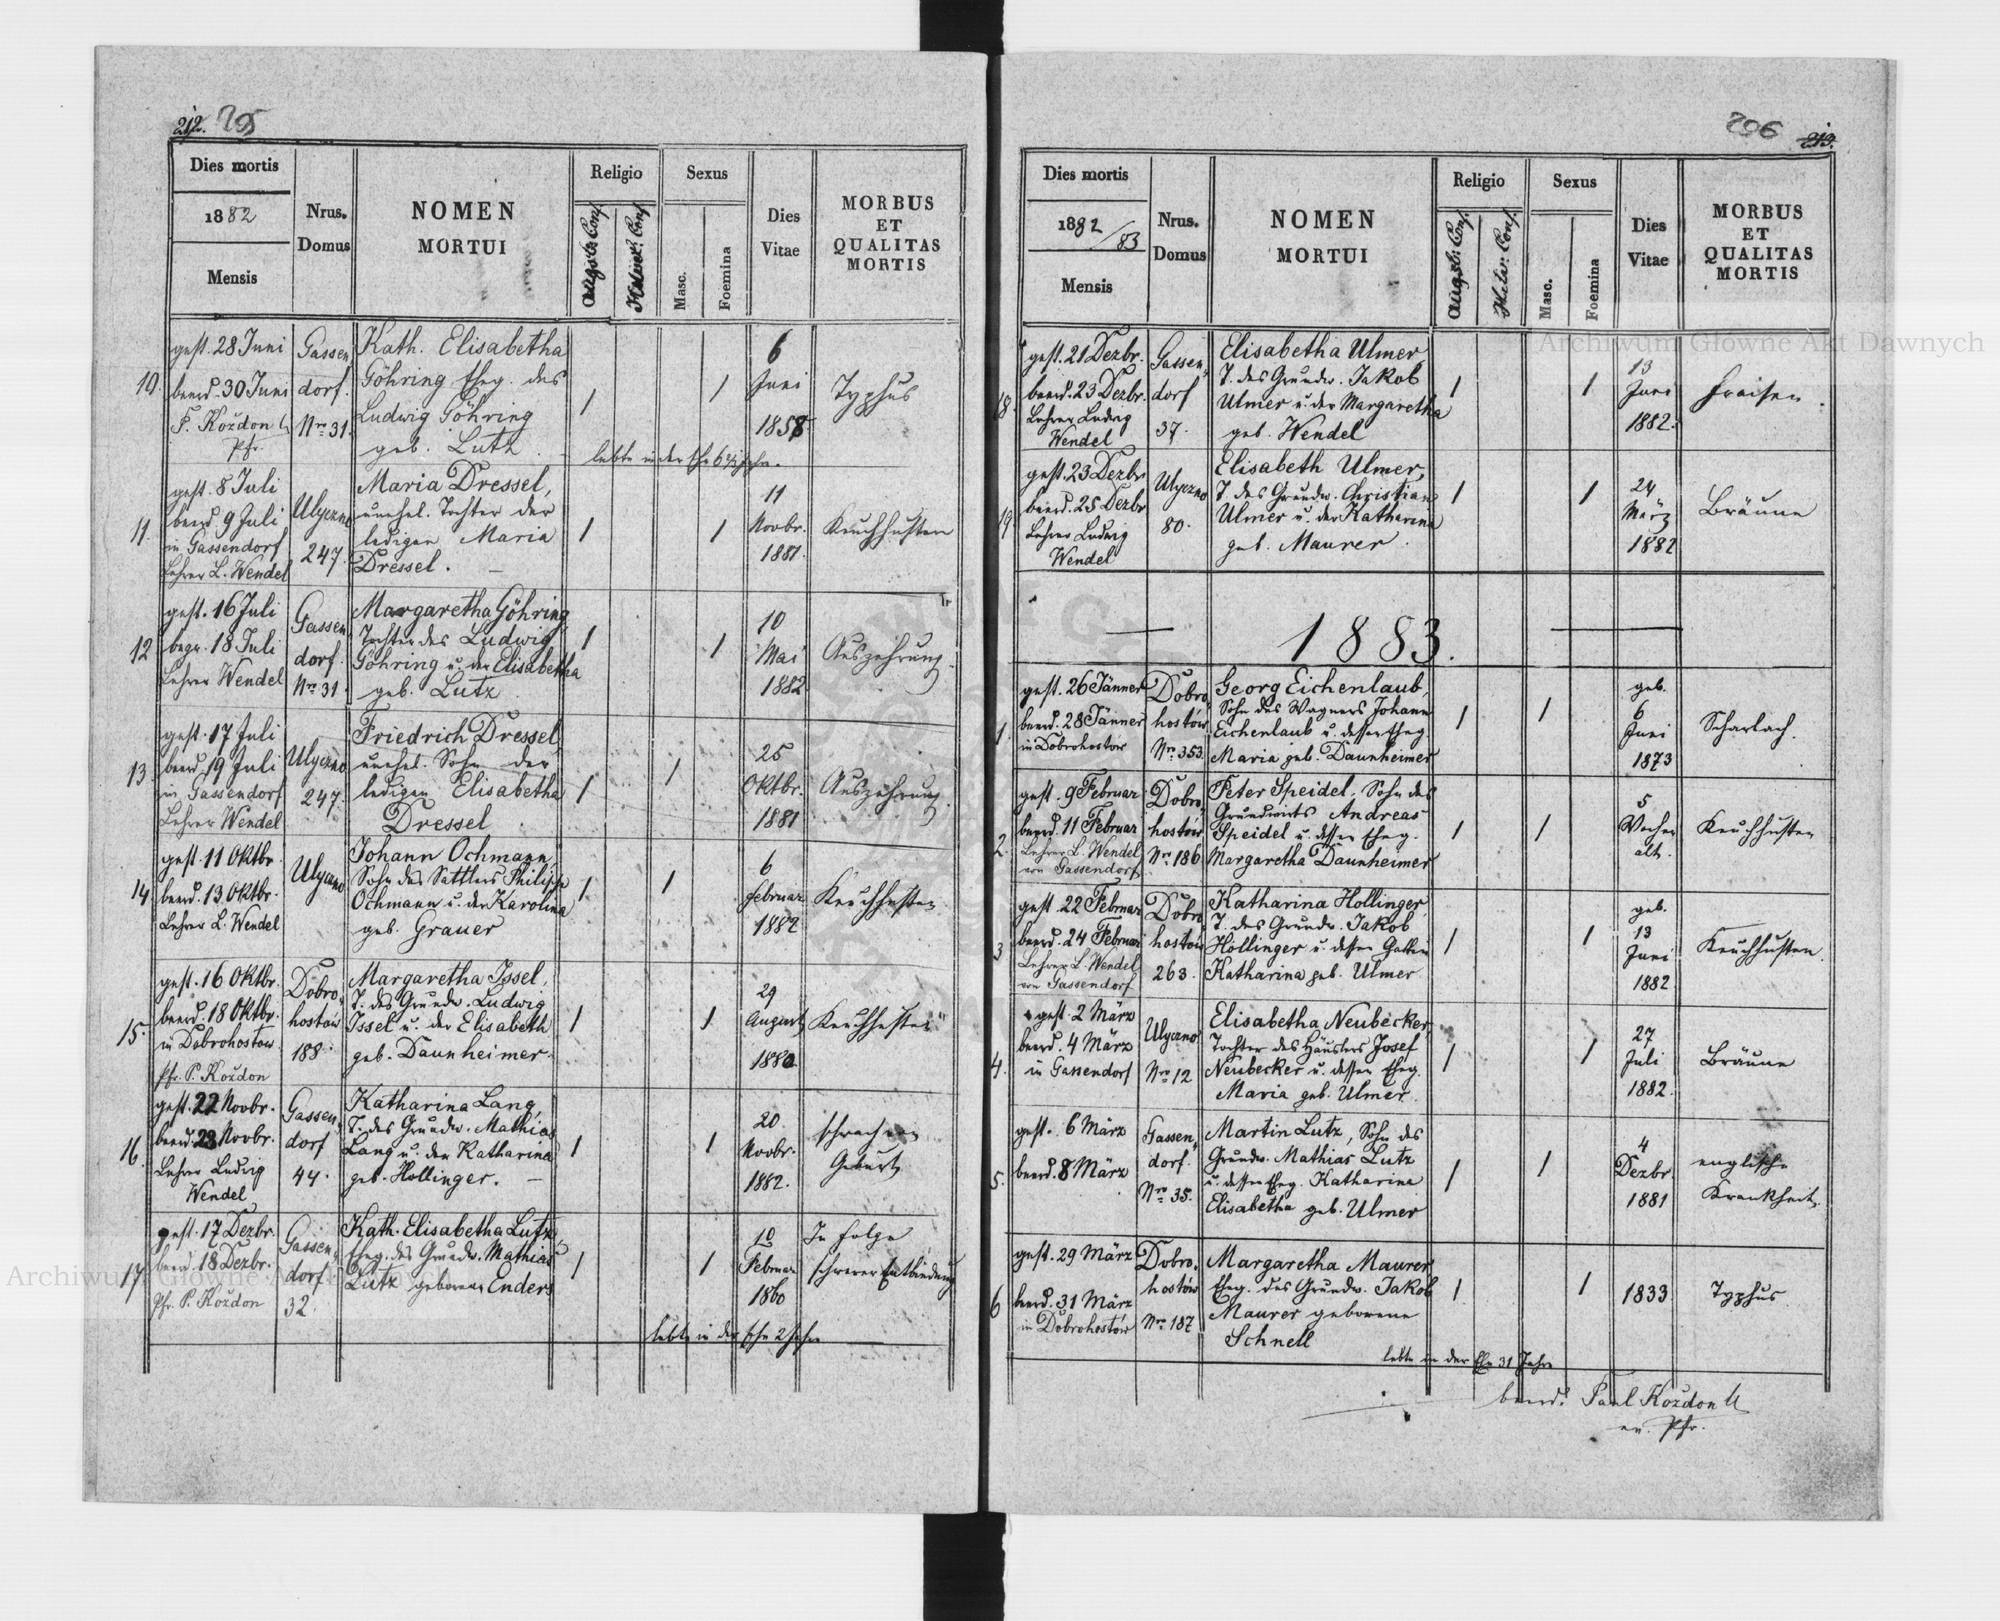 212. 295
Dies mortis
1882
Mensis
Nrus.
Domus
NOMEN
MORTUI
Religio
Augsb. Conf.
Helvet. Conf.
Sexus
Masc.
Foemina
Dies
Vitae
MORBUS
ET
QUALITAS
MORTIS
10.
gest. 28 Juni
beerd. 30 Juni
P. Kożdon
Pfr.
Gassen
dorf.
Nro 31.
Kath. Elisabetha
Göhring Eheg. des
Ludwig Göhring
geb. Lutz.
1
1
6
Juni
1858
Typhus
lebte in der Ehe
11.
gest. 8 Juli
beerd. 9 Juli
in Gassendorf
Lehrer L. Wendel
Ulyczno
247.
Maria Dressel,
unehel. Tochter der
ledigen Maria
Dressel. —
1
1
11
Novbr.
1881.
Keuchhusten
12
gest. 16 Juli
begr. 18 Juli
Lehrer Wendel
Gassen
dorf.
Nro 31.
Margaretha Göhring,
Tochter des Ludwig
Göhring u. der Elisabetha
geb. Lutz.
1
1
10
Mai
1882
Auszehrung.
13
gest. 17 Juli
beerd. 19 Juli
in Gassendorf
Lehrer Wendel
Ulyczno
247.
Friedrich Dressel,
unehel. Sohn der
ledigen Elisabetha
Dressel
1
1
25
Oktbr.
1881
Auszehrung.
14
gest. 11 Oktbr.
beerd. 13 Oktbr.
Lehrer L. Wendel
Ulyczno
Johann Ochmann,
Sohn des Sattlers Philipp
Ochmann u. der Karolina
geb. Grauer
1
1
6
Februar
1882
Keuchhusten
15.
gest. 16 Oktbr.
beerd. 18 Oktbr.
in Dobrohostow
Pfr. P. Kożdon
Dobro-
hostow
188.
Margaretha Issel,
T. des Grundw. Ludwig
Issel u. der Elisabeth
geb. Daunheimer.
1
1
29
August
1880
Keuchhusten
16.
gest. 22 Novbr.
beerd. 23 Novbr.
Lehrer Ludwig
Wendel
Gassen-
dorf
44.
Katharina Lang,
T. des Grundw. Mathias
Lang u. der Katharina
geb. Hollinger. —
1
1
20
Novbr.
1882.
Geburt
17
gest. 17 Dezbr.
beerd. 18 Dezbr.
Pfr. P. Kożdon
Gassen-
dorf
32.
Kath. Elisabetha Lutz,
Eheg. des Grundw. Mathias
Lutz geborene Enders
1
1
10
Februar
1860
In Folge
schwerer Entbindung
lebte in der Ehe 2 Jahre
296 213.
Dies mortis
1882/83
Mensis
Nrus.
Domus
NOMEN
MORTUI
Religio
Augsb. Conf.
Helv. Conf.
Sexus
Masc.
Foemina
Dies
Vitae
MORBUS
ET
QUALITAS
MORTIS
18.
gest. 21 Dezbr.
beerd. 23 Dezbr.
Lehrer Ludwig
Wendel
Gassen-
dorf
37.
Elisabetha Ulmer
T. des Grundw. Jakob
Ulmer u. der Margaretha
geb. Wendel
1
1
13
Juni
1882.
Fraisen.
19
gest. 23 Dezbr.
beerd. 25 Dezbr
Lehrer Ludwig
Wendel
Ulyczno
80.
Elisabeth Ulmer,
T. des Grundw. Christian
Ulmer u. der Katharina
geb. Maurer.
1
1
24
März
1882
Bräune
1883.
1
gest. 26 Jänner
beerd. 28 Jänner
in Dobrohostów
Dobro
hostów
Nro 353
Georg Eichenlaub,
Sohn des Wagners Johann
Eichenlaub u. dessen Eheg.
Maria geb. Daunheimer
1
1
geb.
6
Juni
1873
Scharlach.
2.
gest. 9 Februar
beerd. 11 Februar
Lehrer L. Wendel
von Gassendorf
Dobro-
hostów
Nro 186
Peter Speidel, Sohn des
Grundwirts Andreas
Speidel u. dessen Eheg.
Margaretha Daunheimer
1
1
5
Wochen
alt.
Keuchhusten
3
gest. 22 Februar
beerd. 24 Februar
Lehrer L. Wendel
von Gassendorf
Dobro
hostów
263.
Katharina Hollinger,
T. des Grundw. Jakob
Hollinger u. dessen Gattin
Katharina geb. Ulmer
1
1
geb.
13
Juni
1882
Keuchhusten.
4.
gest. 2 März
beerd. 4 März
in Gassendorf
Ulyczno
Nro 12
Elisabetha Neubecker,
Tochter des Häuslers Josef
Neubecker u. dessen Eheg.
Maria geb. Ulmer.
1
1
27
Juli
1882.
Bräune
5.
gest. 6 März
beerd. 8 März
Gassen-
dorf.
Nro 35.
Martin Lutz, Sohn des
Grundw. Mathias Lutz
u. dessen Eheg. Katharina
Elisabetha geb. Ulmer
1
1
4
Dezbr.
1881
englische
Krankheit
6
gest. 29 März
beerd. 31 März
in Dobrohostów
Dobro-
hostów
Nro 187
Margaretha Maurer
Eheg. des Grundw. Jakob
Maurer geborene
Schnell
1
1
1833
Typhus
lebte in der Ehe 31 Jahre
beerd. Paul Kożdon
ev. Pfr.
Archiwum Główne Akt Dawnych
Archiwum Główne Akt Dawnych